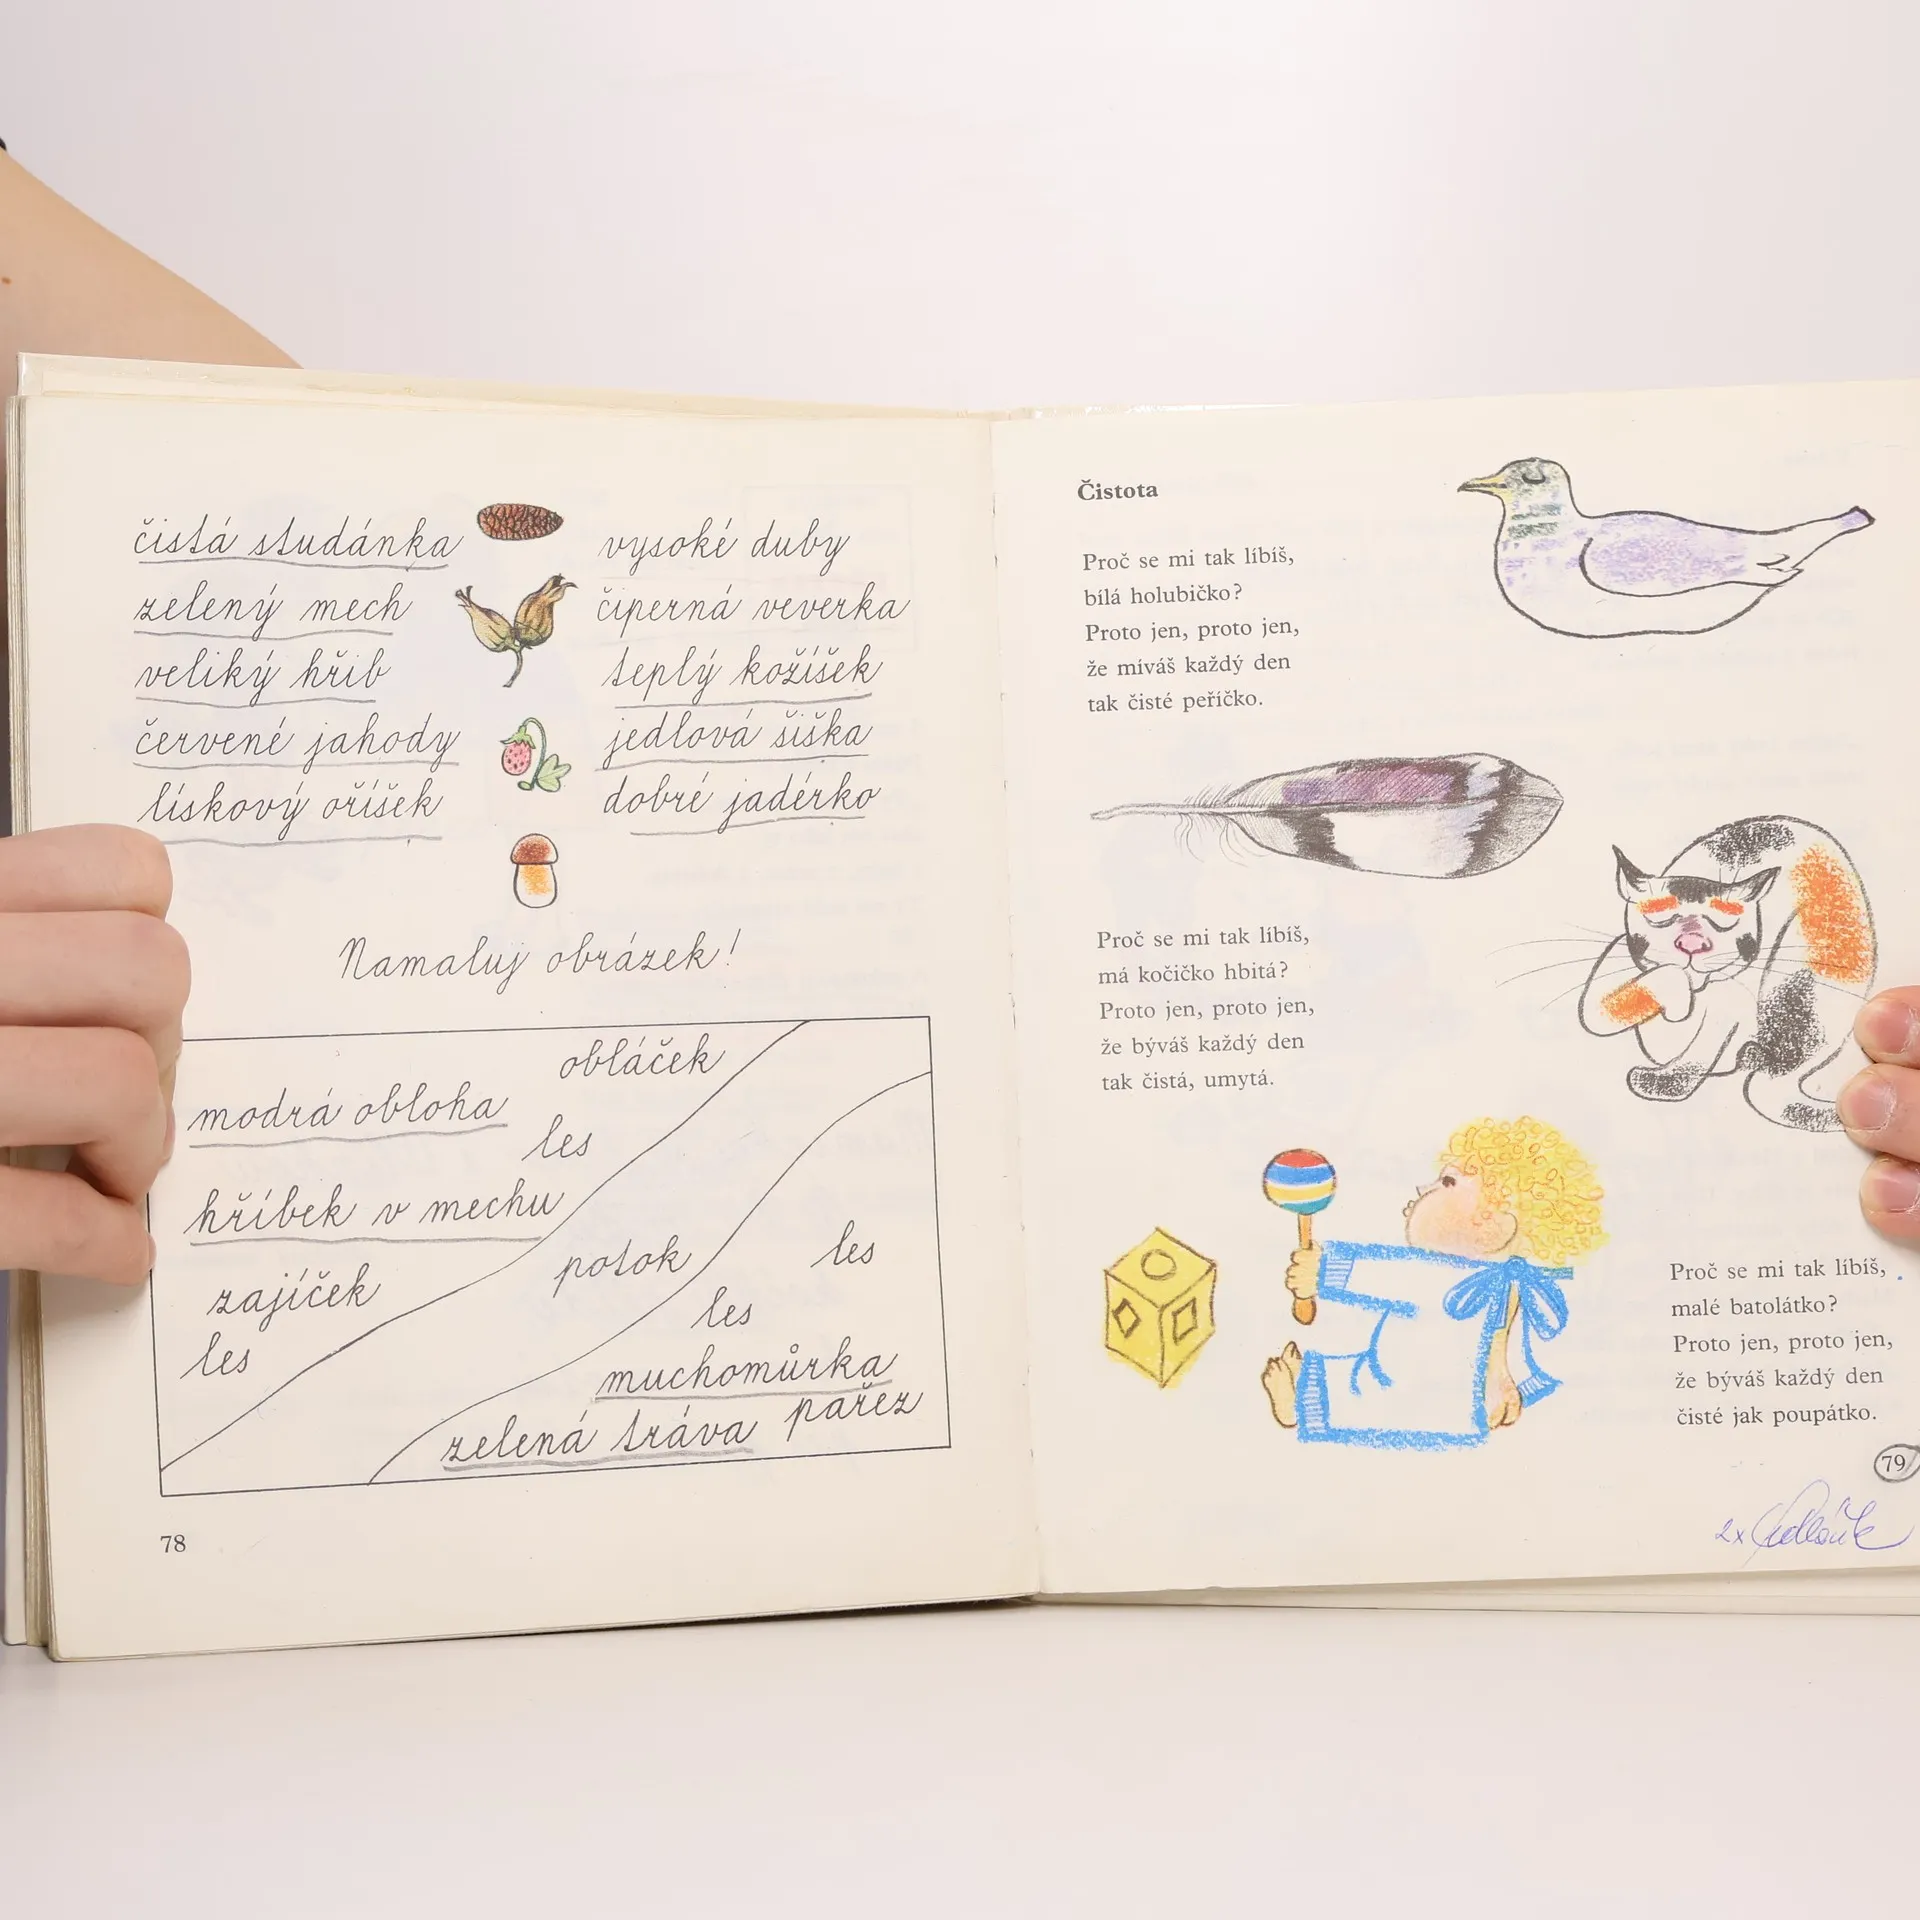 čistá studánka
zelený mech
veliký hřib
červené jahody
lískový oříšek
vysoké duby
čiperná veverka
teplý kožíšek
jedlová šiška
dobré jadérko
Namaluj obrázek!
obláček
modrá obloha
les
hříbek v mechu
potok
les
zajíček
les
les
muchomůrka
zelená tráva pařez
78
Čistota
Proč se mi tak líbíš,
bílá holubičko?
Proto jen, proto jen,
že míváš každý den
tak čisté peříčko.
Proč se mi tak líbíš,
má kočičko hbitá?
Proto jen, proto jen,
že býváš každý den
tak čistá, umytá.
Proč se mi tak líbíš,
malé batolátko?
Proto jen, proto jen,
že býváš každý den
čisté jak poupátko.
79
2x